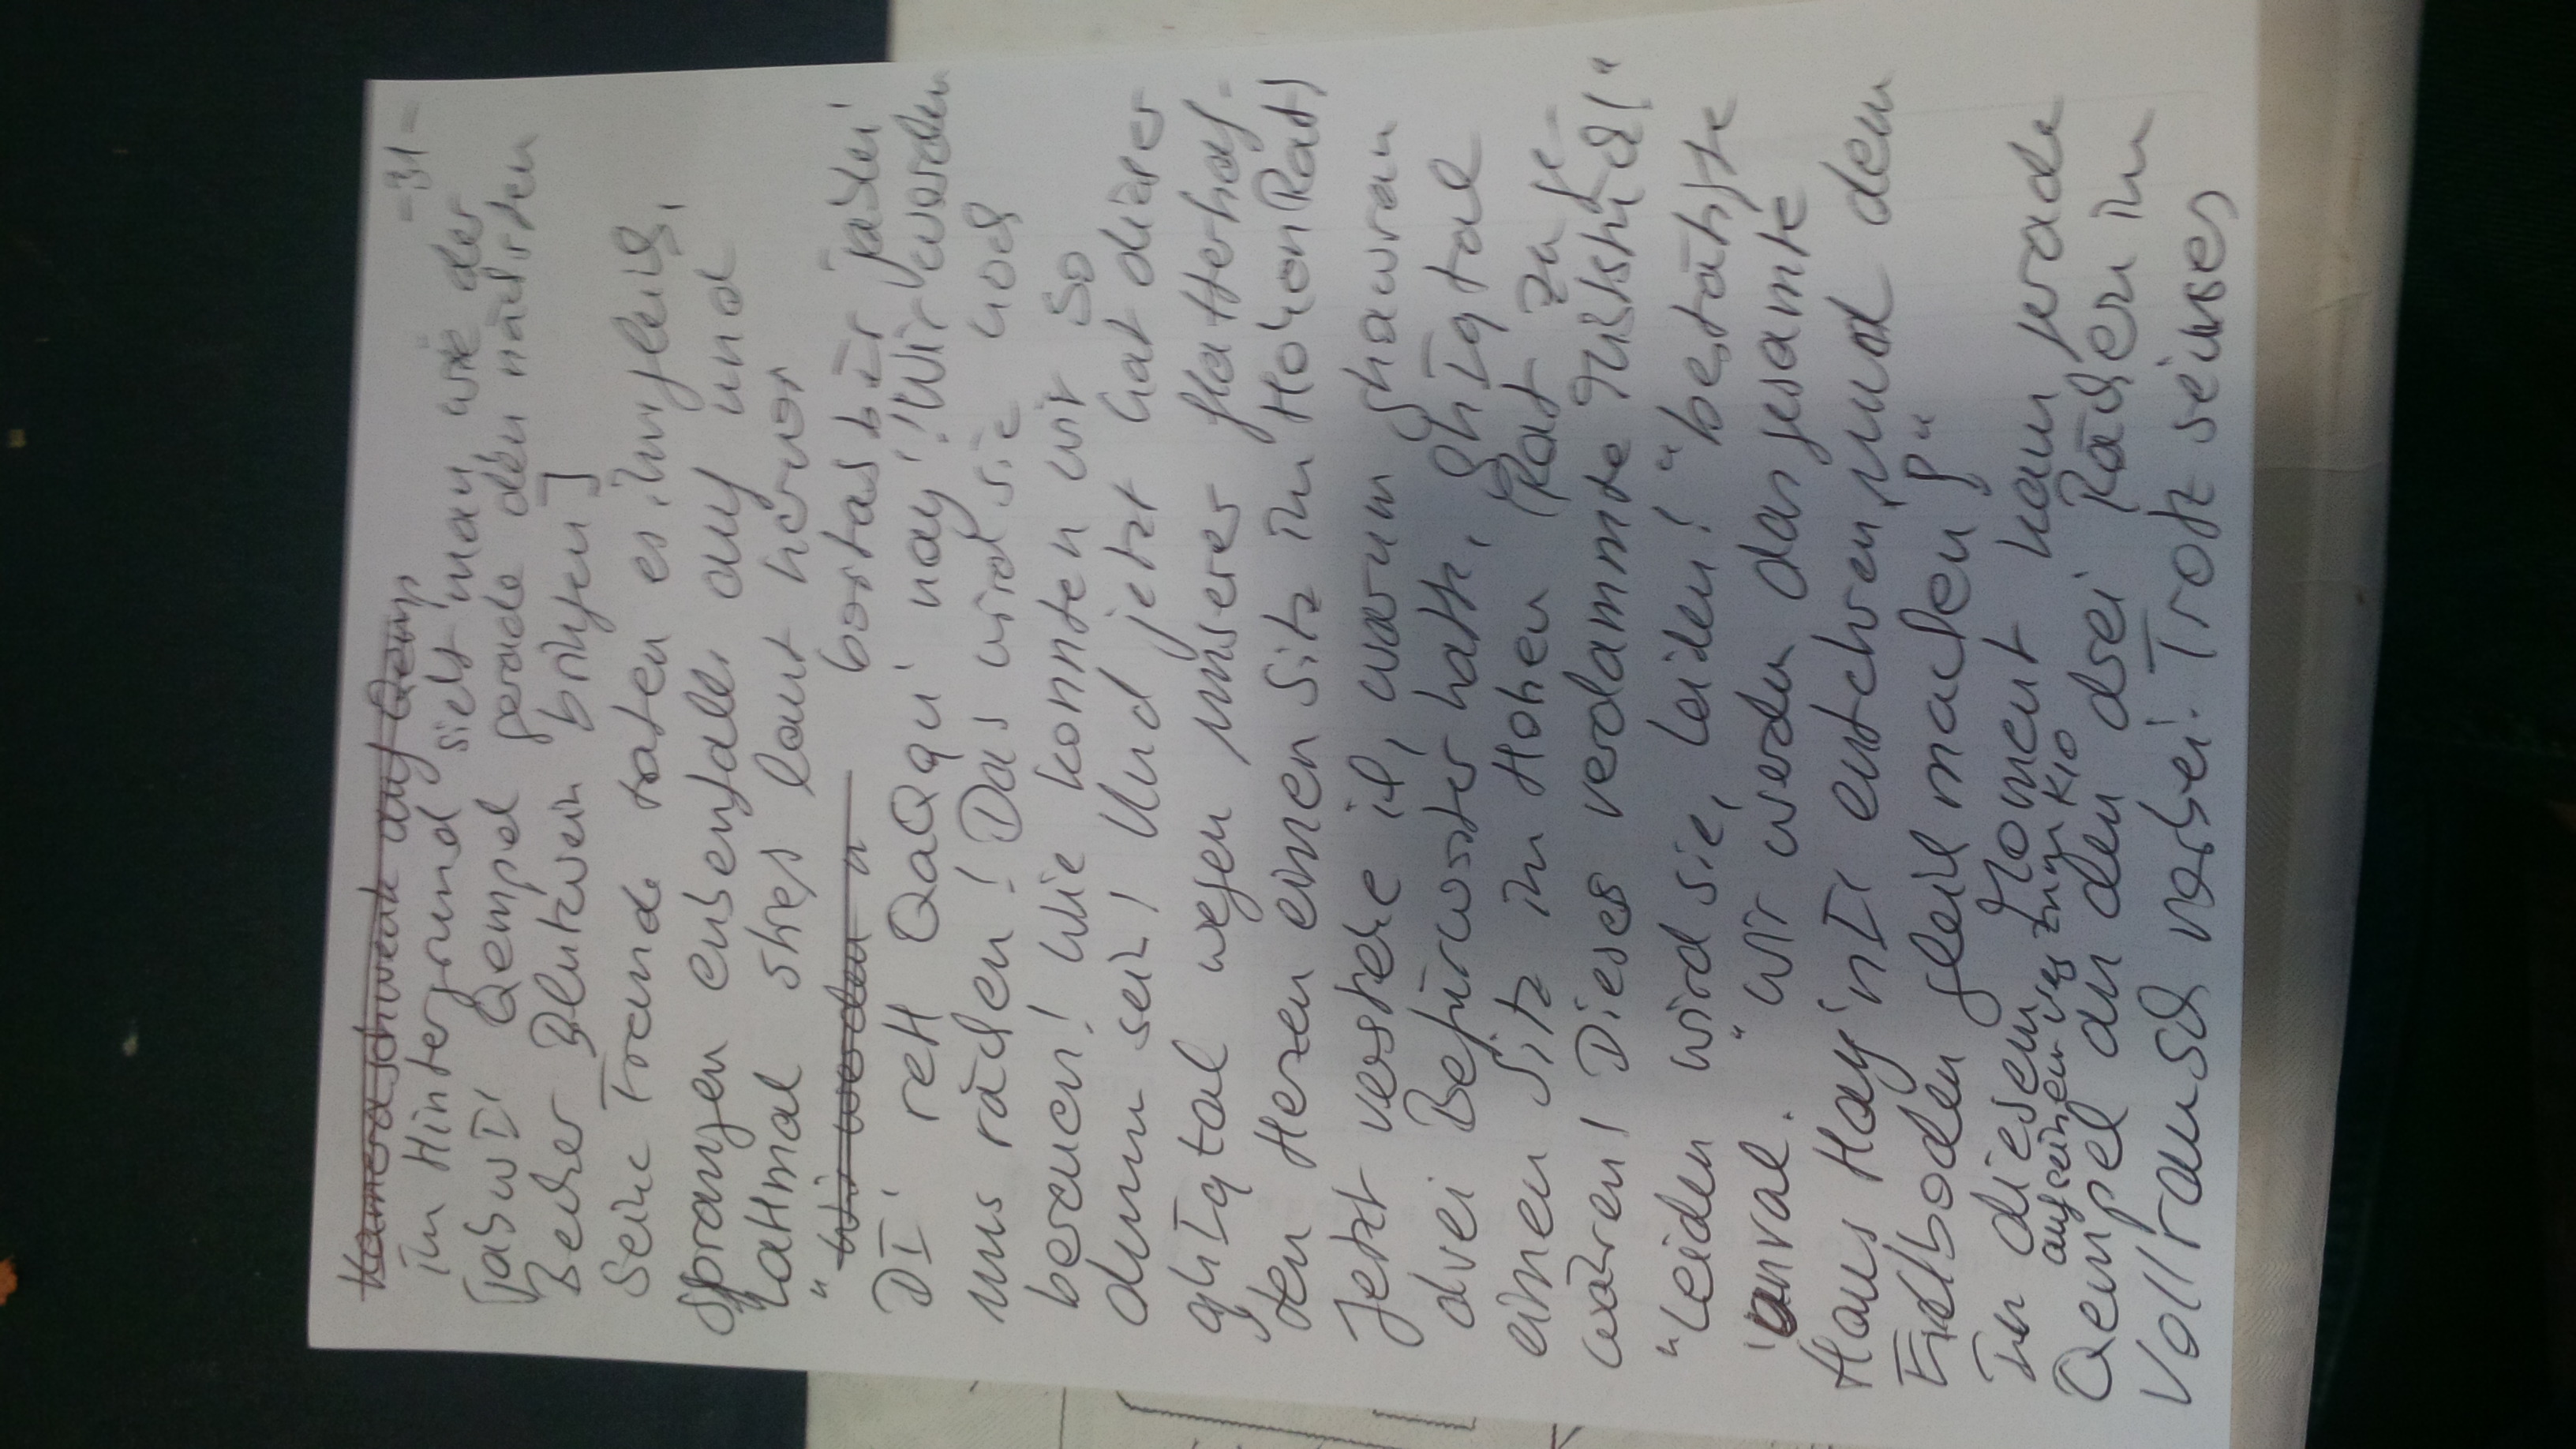 -31-
Kameraschwenk auf Qemp
im Hintergrund sieht man wie der
[jabwI' Qempel gerade den nächsten
Becher Blutwein bringen]
Seine Freunde taten es ihm gleich,
sprangen ebenfalls auf und
laut hervor
"Wir werden
DI' reH QaQqu' nay'! Wir werden
uns rächen! Das wird sie noch
bereuen! Wie konnten wir so
dumm sein! Und jetzt hat dieser
ghIqtal wegen unseres flatterhaf-
ten Herzen einen Sitz im Hohen Rat!
Jetzt verstehe ich, warum ghawran
drei Befürworter hatte, ghIqtal
einen Sitz im Hohen Rat zu ge-
währen! Dieses verdammte Miststück!"
"Leiden wird sie, leiden!" bestätigte
'anral. "Wir werden das gesamte
Haus Hay'nDI entehren und dem
Erdboden gleich machen!"
In diesem Moment kam gerade
auf seinem Weg zum Klo
Qempel an den drei Rächern im
Vollrausch vorbei. Trotz seines